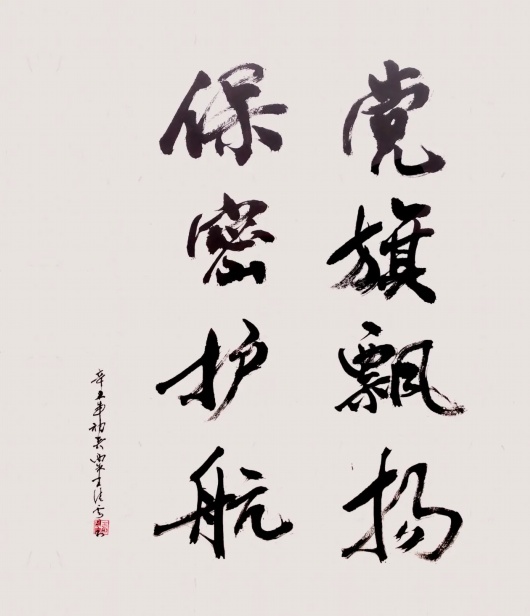 党旗飘扬
保密护航
辛丑年初冬